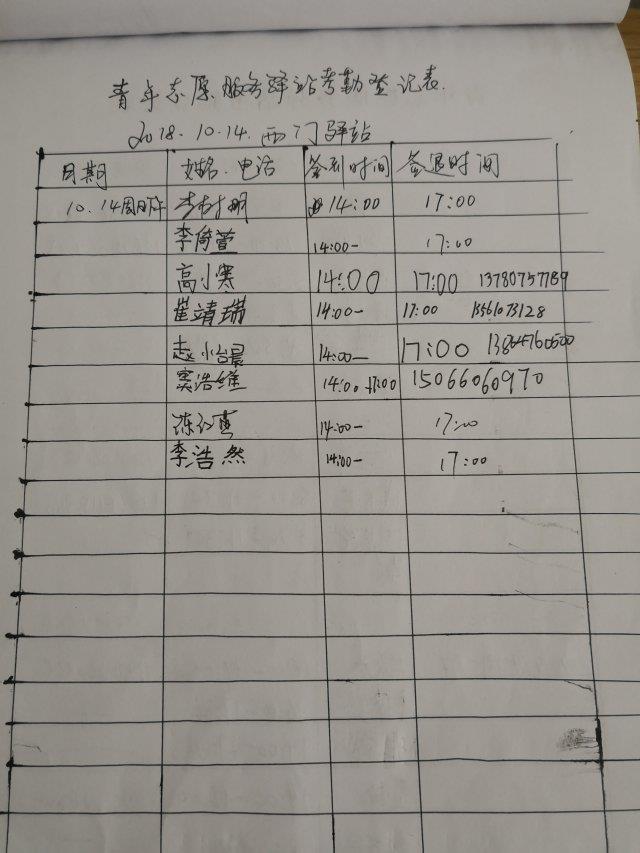 青年志愿服务驿站考勤登记表
2018.10.14.西门驿站
日期 姓名.电话 签到时间 签退时间
10.14周日下午 14:00 17:00
李倚萱 14:00- 17:00
高小寒 14:00 17:00 13780757789
崔靖瑞 14:00- 17:00 13561073128
赵怡晨 14:00- 17:00
窦浩维 14:00-17:00 15066060970
14:00- 17:00
李浩然 14:00- 17:00